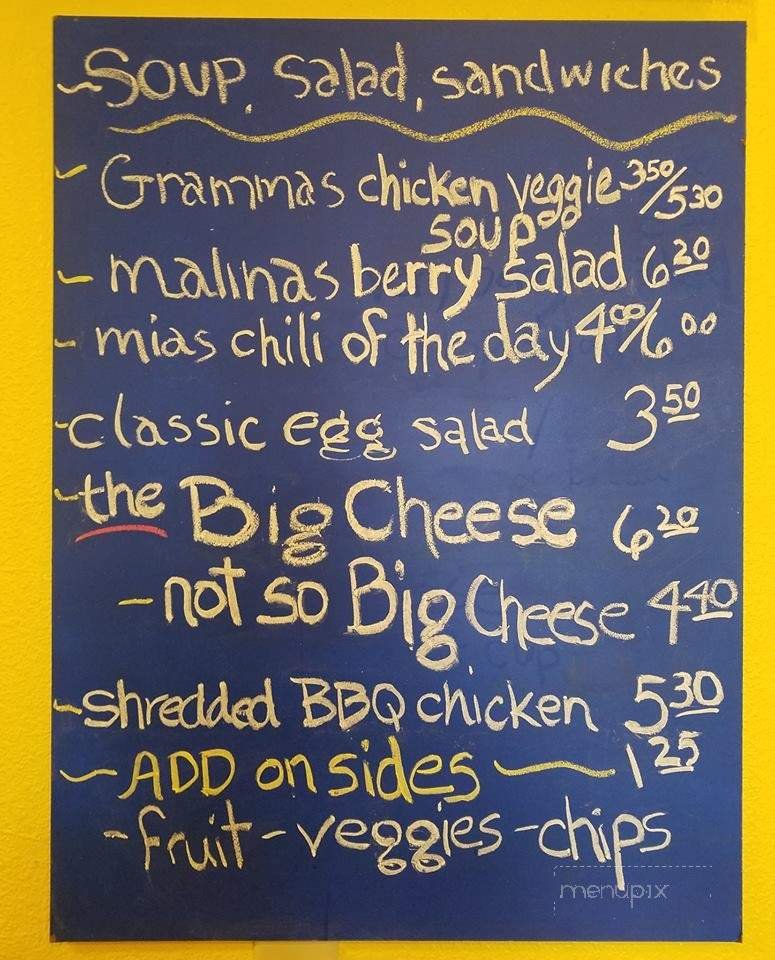 ~Soup, Salad, sandwiches
- Grammas chicken veggie 3 50/5 30
soup
- malinas berry salad 6 20
- mias chili of the day 4 00/6 00
-classic egg salad 3 50
-the Big Cheese 6 20
-not so Big Cheese 4 40
-shredded BBQ chicken 5 30
~ADD on sides ~ 1 25
-fruit -veggies -chips
menupix